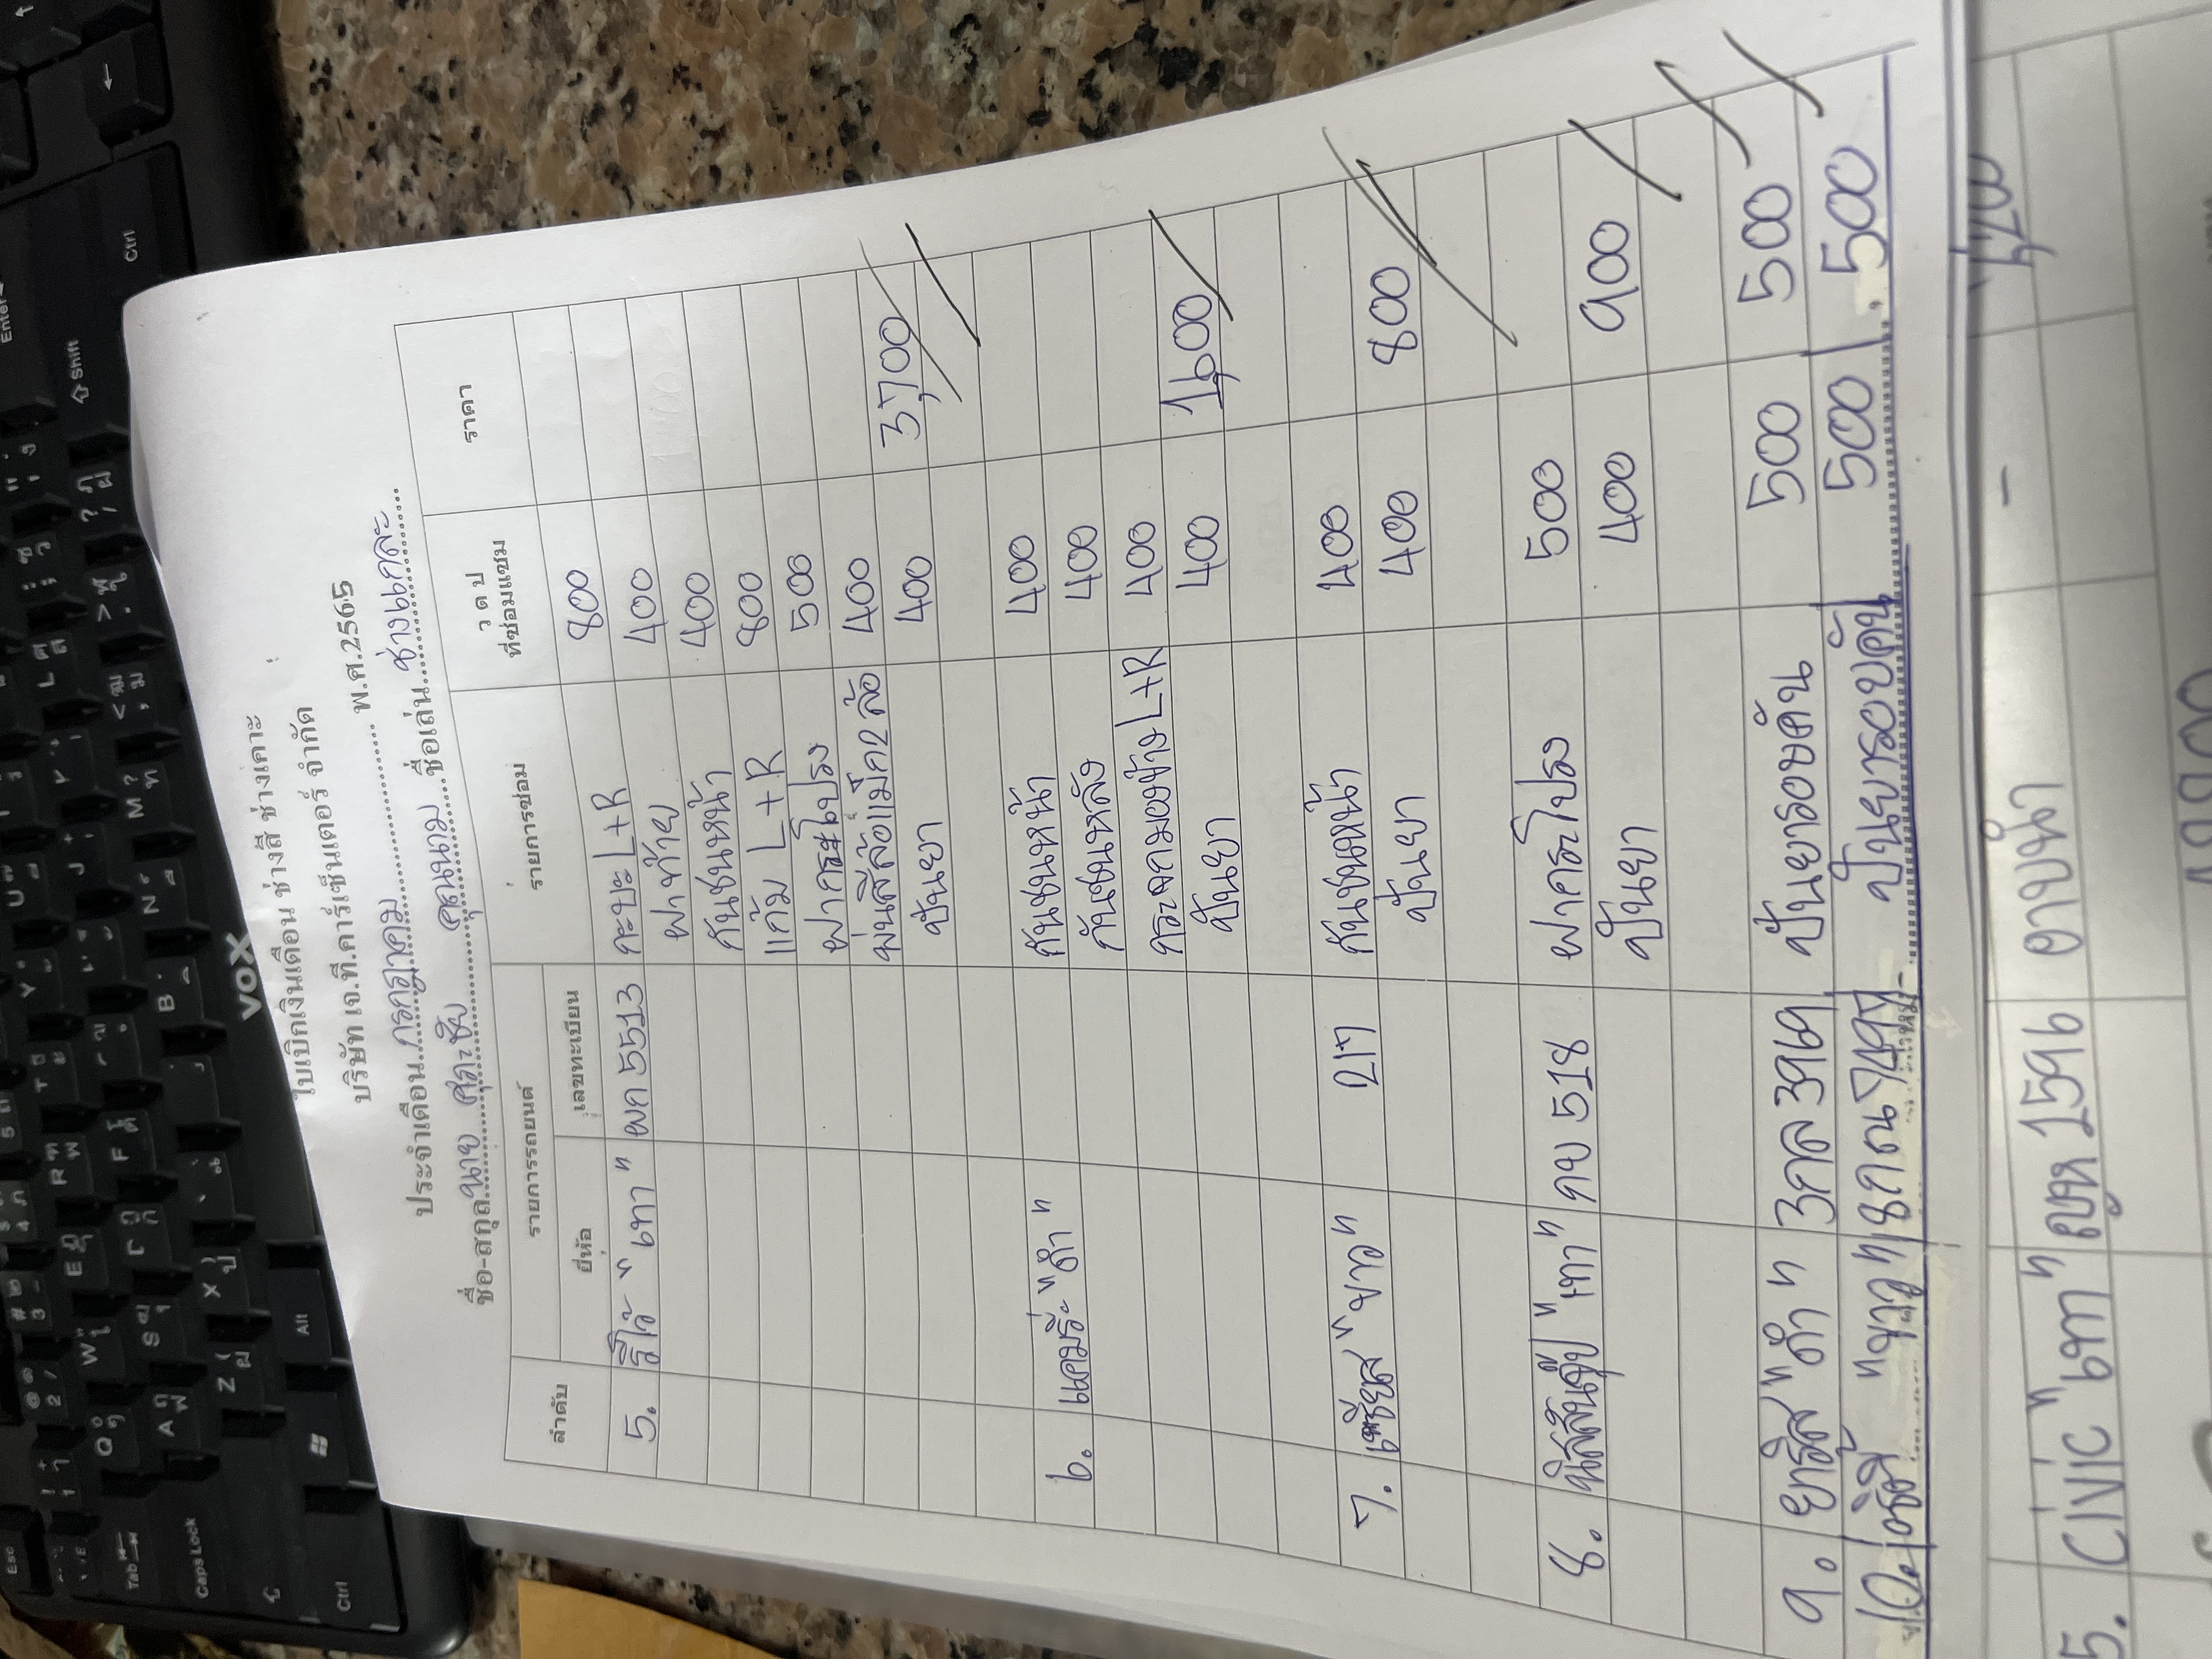 ใบเบิกเงินเดือน ช่างสี ช่างเคาะ
บริษัท เจ.ที.คาร์เซ็นเตอร์ จำกัด
ประจำเดือน กรกฎาคม พ.ศ.2565
ชื่อ-สกุล นาย สุระชัย คุณนาม ชื่อเล่น ช่างแกละ
ลำดับ รายการรถยนต์ รายการซ่อม ว ด ป ที่ซ่อมแซม ราคา
ยี่ห้อ เลขทะเบียน
5. รีโว้ "เทา" ผก 5513 กะบะ L+R 800
ฝาท้าย 400
กันชนหน้า 400
แก้ม L+R 800
ฝากระโปรง 500
พ่นสีล้อแม็ค 2 ล้อ 400
ปั่นยา 400 3,700
6. แคมรี่ "ดำ" กันชนหน้า 400
กันชนหลัง 400
กระจกมองข้าง L+R 400
ปั่นยา 400 1,600
7. "ขาว" 217 กันชนหน้า 400
ปั่นยา 400 800
8. "เทา" กข 518 ฝากระโปรง 500
ปั่นยา 400 900
9. ยาริส "ดำ" 3กล 3969 ปั่นยารอบคัน 500 500
10. "ขาว" 8กณ 7497 ปั่นยารอบคัน 500 500
5. CIVIC "เทา" 1596 อาบน้ำ - 1,200